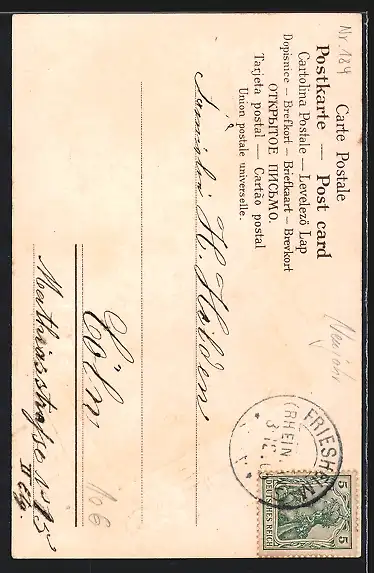 Nr. 184
Carte Postale
Postkarte — Post card
Cartolina Postale — Levelező Lap
Dopisnice — Brefkort — Briefkaart — Brevkort
ОТКРЫТОЕ ПИСЬМО.
Tarjeta postal — Cartão postal
Union postale universelle.
Neujahr
FRIESHEIM
(RHEIN.
5
DEUTSCHES REICH
5
Familie H. Hilden
Cöln
106
Mathiasstrasse № 13
II Etg.